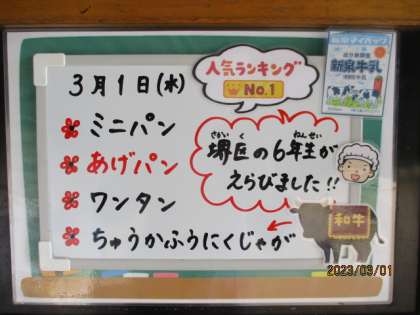 3月1日(水)
人気ランキング
No.1
新泉牛乳
ミニパン
あげパン
ワンタン
ちゅうかふうにくじゃが
さかい く ねんせい
堺区の6年生が
えらびました!!
和牛
2023/03/01